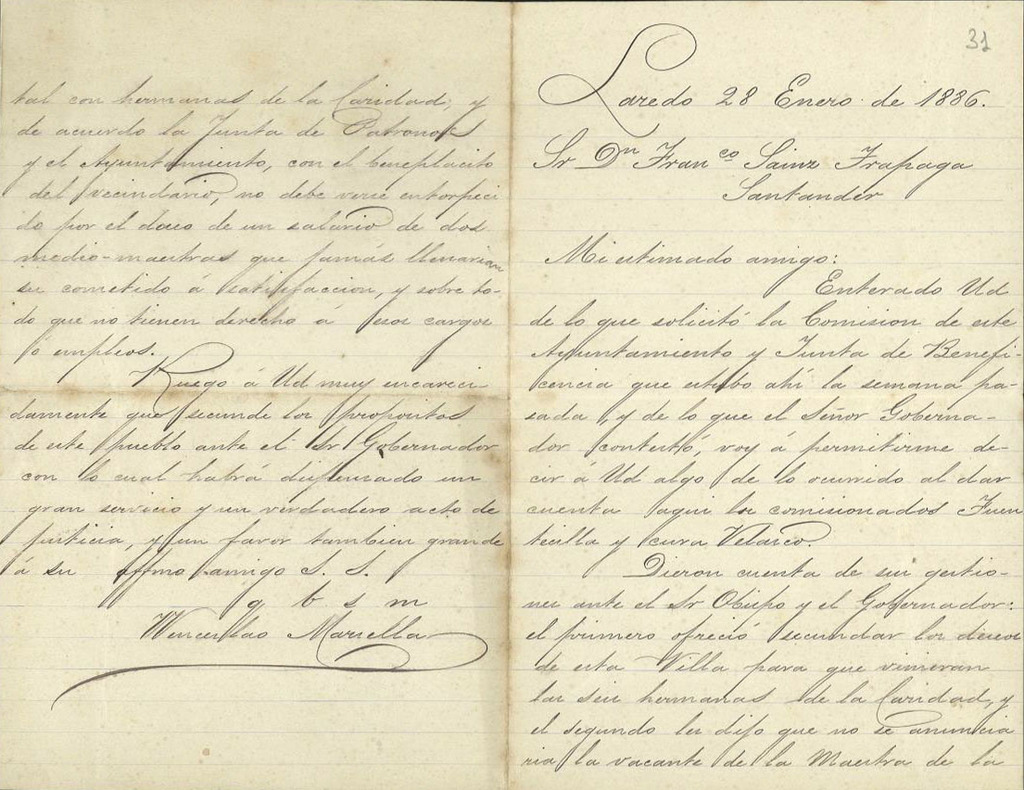 31
Laredo 28 Enero de 1886.
Sr Dn Franco Sainz Trapaga
Santander
Mi estimado amigo:
Enterado Ud
de lo que solicitó la Comision de este
Ayuntamiento y Junta de Benefi-
cencia que estubo ahi la semana pa-
sada, y de lo que el Señor Goberna-
dor contestó, voy á permitirme de-
cir á Ud algo de lo ocurrido al dar
cuenta aqui los comisionados Fuen
tecilla y cura Velasco.
Dieron cuenta de sus gestio-
nes ante el Sr Obispo y el Gobernador:
el primero ofreció secundar los deseos
de esta Villa para que vinieran
las seis hermanas de la Caridad, y
el segundo les dijo que no se anuncia
ria la vacante de la Maestra de la
tal con hermanas de la Caridad, y
de acuerdo la Junta de Patronos
y el Ayuntamiento, con el beneplacito
del vecindario, no debe verse entorpeci
do por el deseo de un salario de dos
medio-maestras que jamás llenarian
su cometido á satisfaccion, y sobre to-
do que no tienen derecho á esos cargos
ó empleos.
Ruego á Ud muy encareci
damente que secunde los propositos
de este pueblo ante el Sr Gobernador
con lo cual habrá dispensado un
gran servicio y un verdadero acto de
justicia, y un favor tambien grande
á su affmo amigo S. S.
q b s m
Wenceslao Marsella